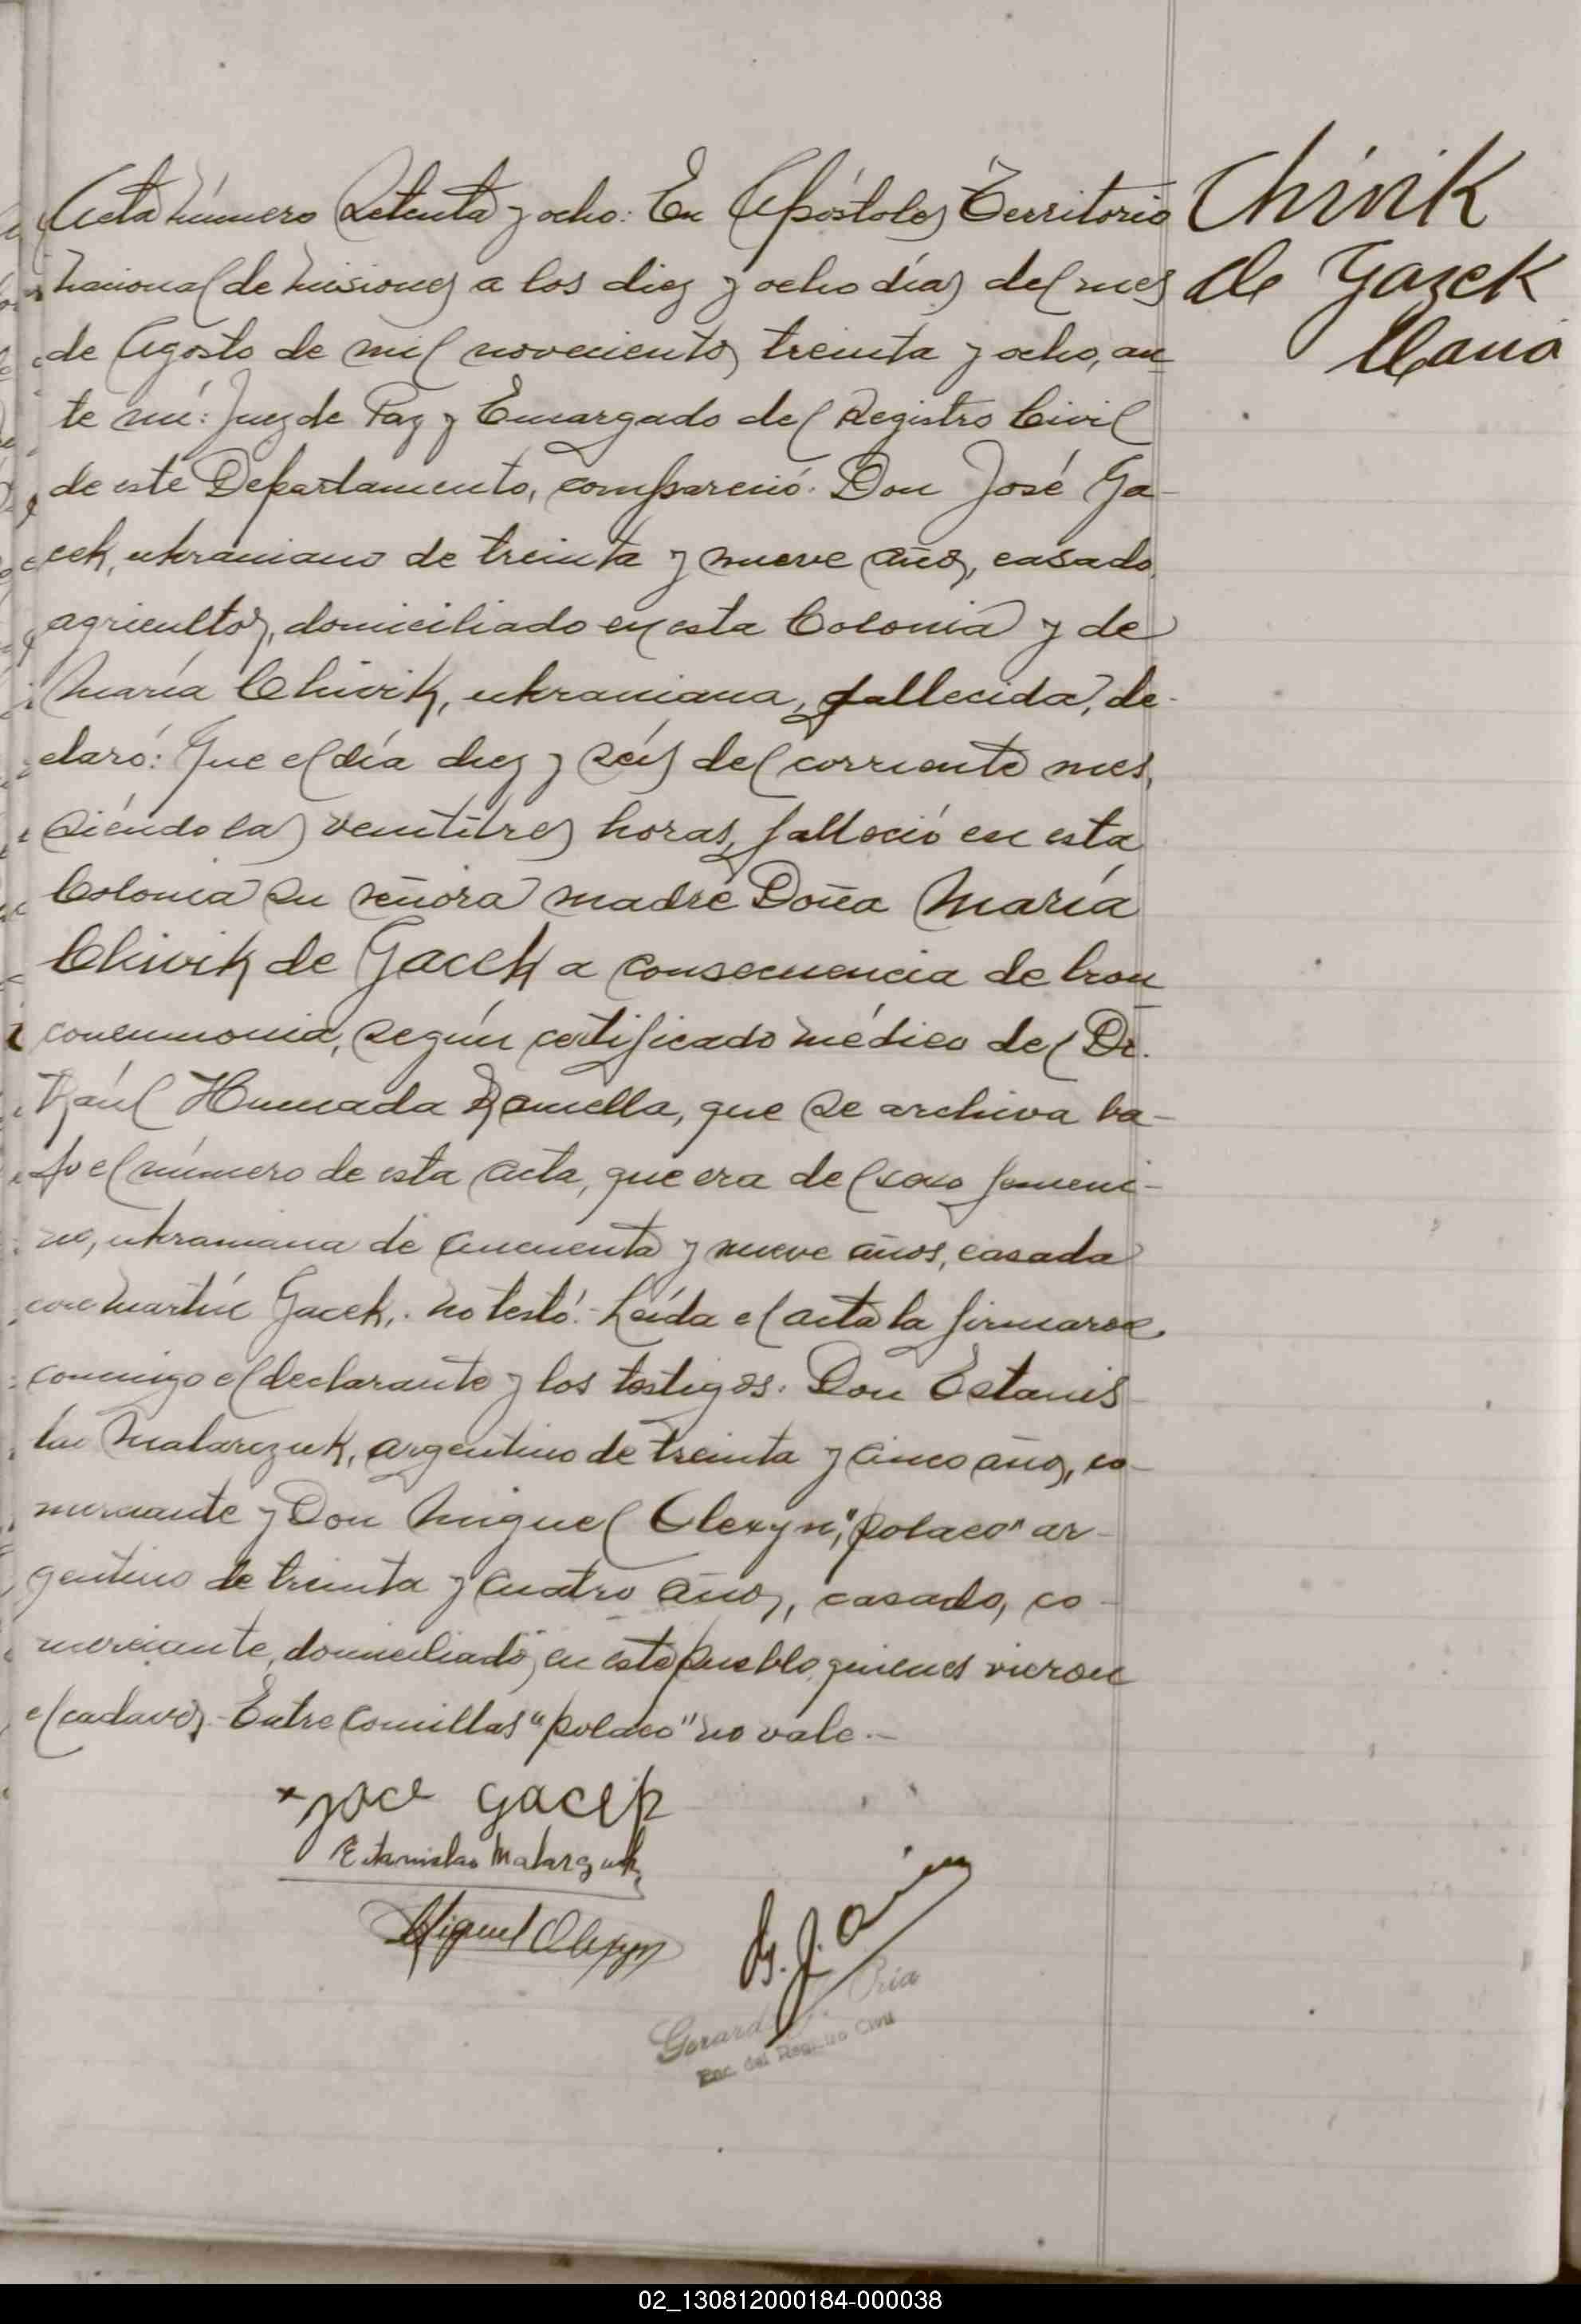 Acta número Setenta y ocho: En Apóstoles Territorio
Nacional de Misiones a los diez y ocho días del mes
de Agosto de mil novecientos treinta y ocho, an
te mí: Juez de Paz y Encargado del Registro Civil
de este Departamento, compareció: Don José Ga-
cek, ukraniano de treinta y nueve años, casado,
agricultor, domiciliado en esta Colonia y de
María Chivik, ukraniana, fallecida, de-
claró: Que el día diez y seis del corriente mes,
siéndo las veintitres horas, falleció en esta
Colonia su señora madre Doña María
Chivik de Gacek a consecuencia de bron
coneumonia, según certificado médico del Dr.
Raúl Humada Ramella, que se archiva ba-
jo el número de esta acta, que era del sexo femeni-
no, ukraniana de cincuenta y nueve años, casada
con Martín Gacek, no testó.- Leída el acta la firmaron
conmigo el declarante y los testigos: Don Estanis
lao Malarczuk, argentino de treinta y cinco años, co-
merciante y Don Miguel Olexyn, "polaco" ar-
gentino de treinta y cuatro años, casado, co-
merciante, domiciliados en este pueblo, quienes vieron
el cadaver.- Entre comillas "polaco" no vale.-
Chivik
de Gazek
María
x Jose Gacek
Estanislao Malarczuk
Miguel Olexyn
Enc. del Registro Civil
02_130812000184-000038